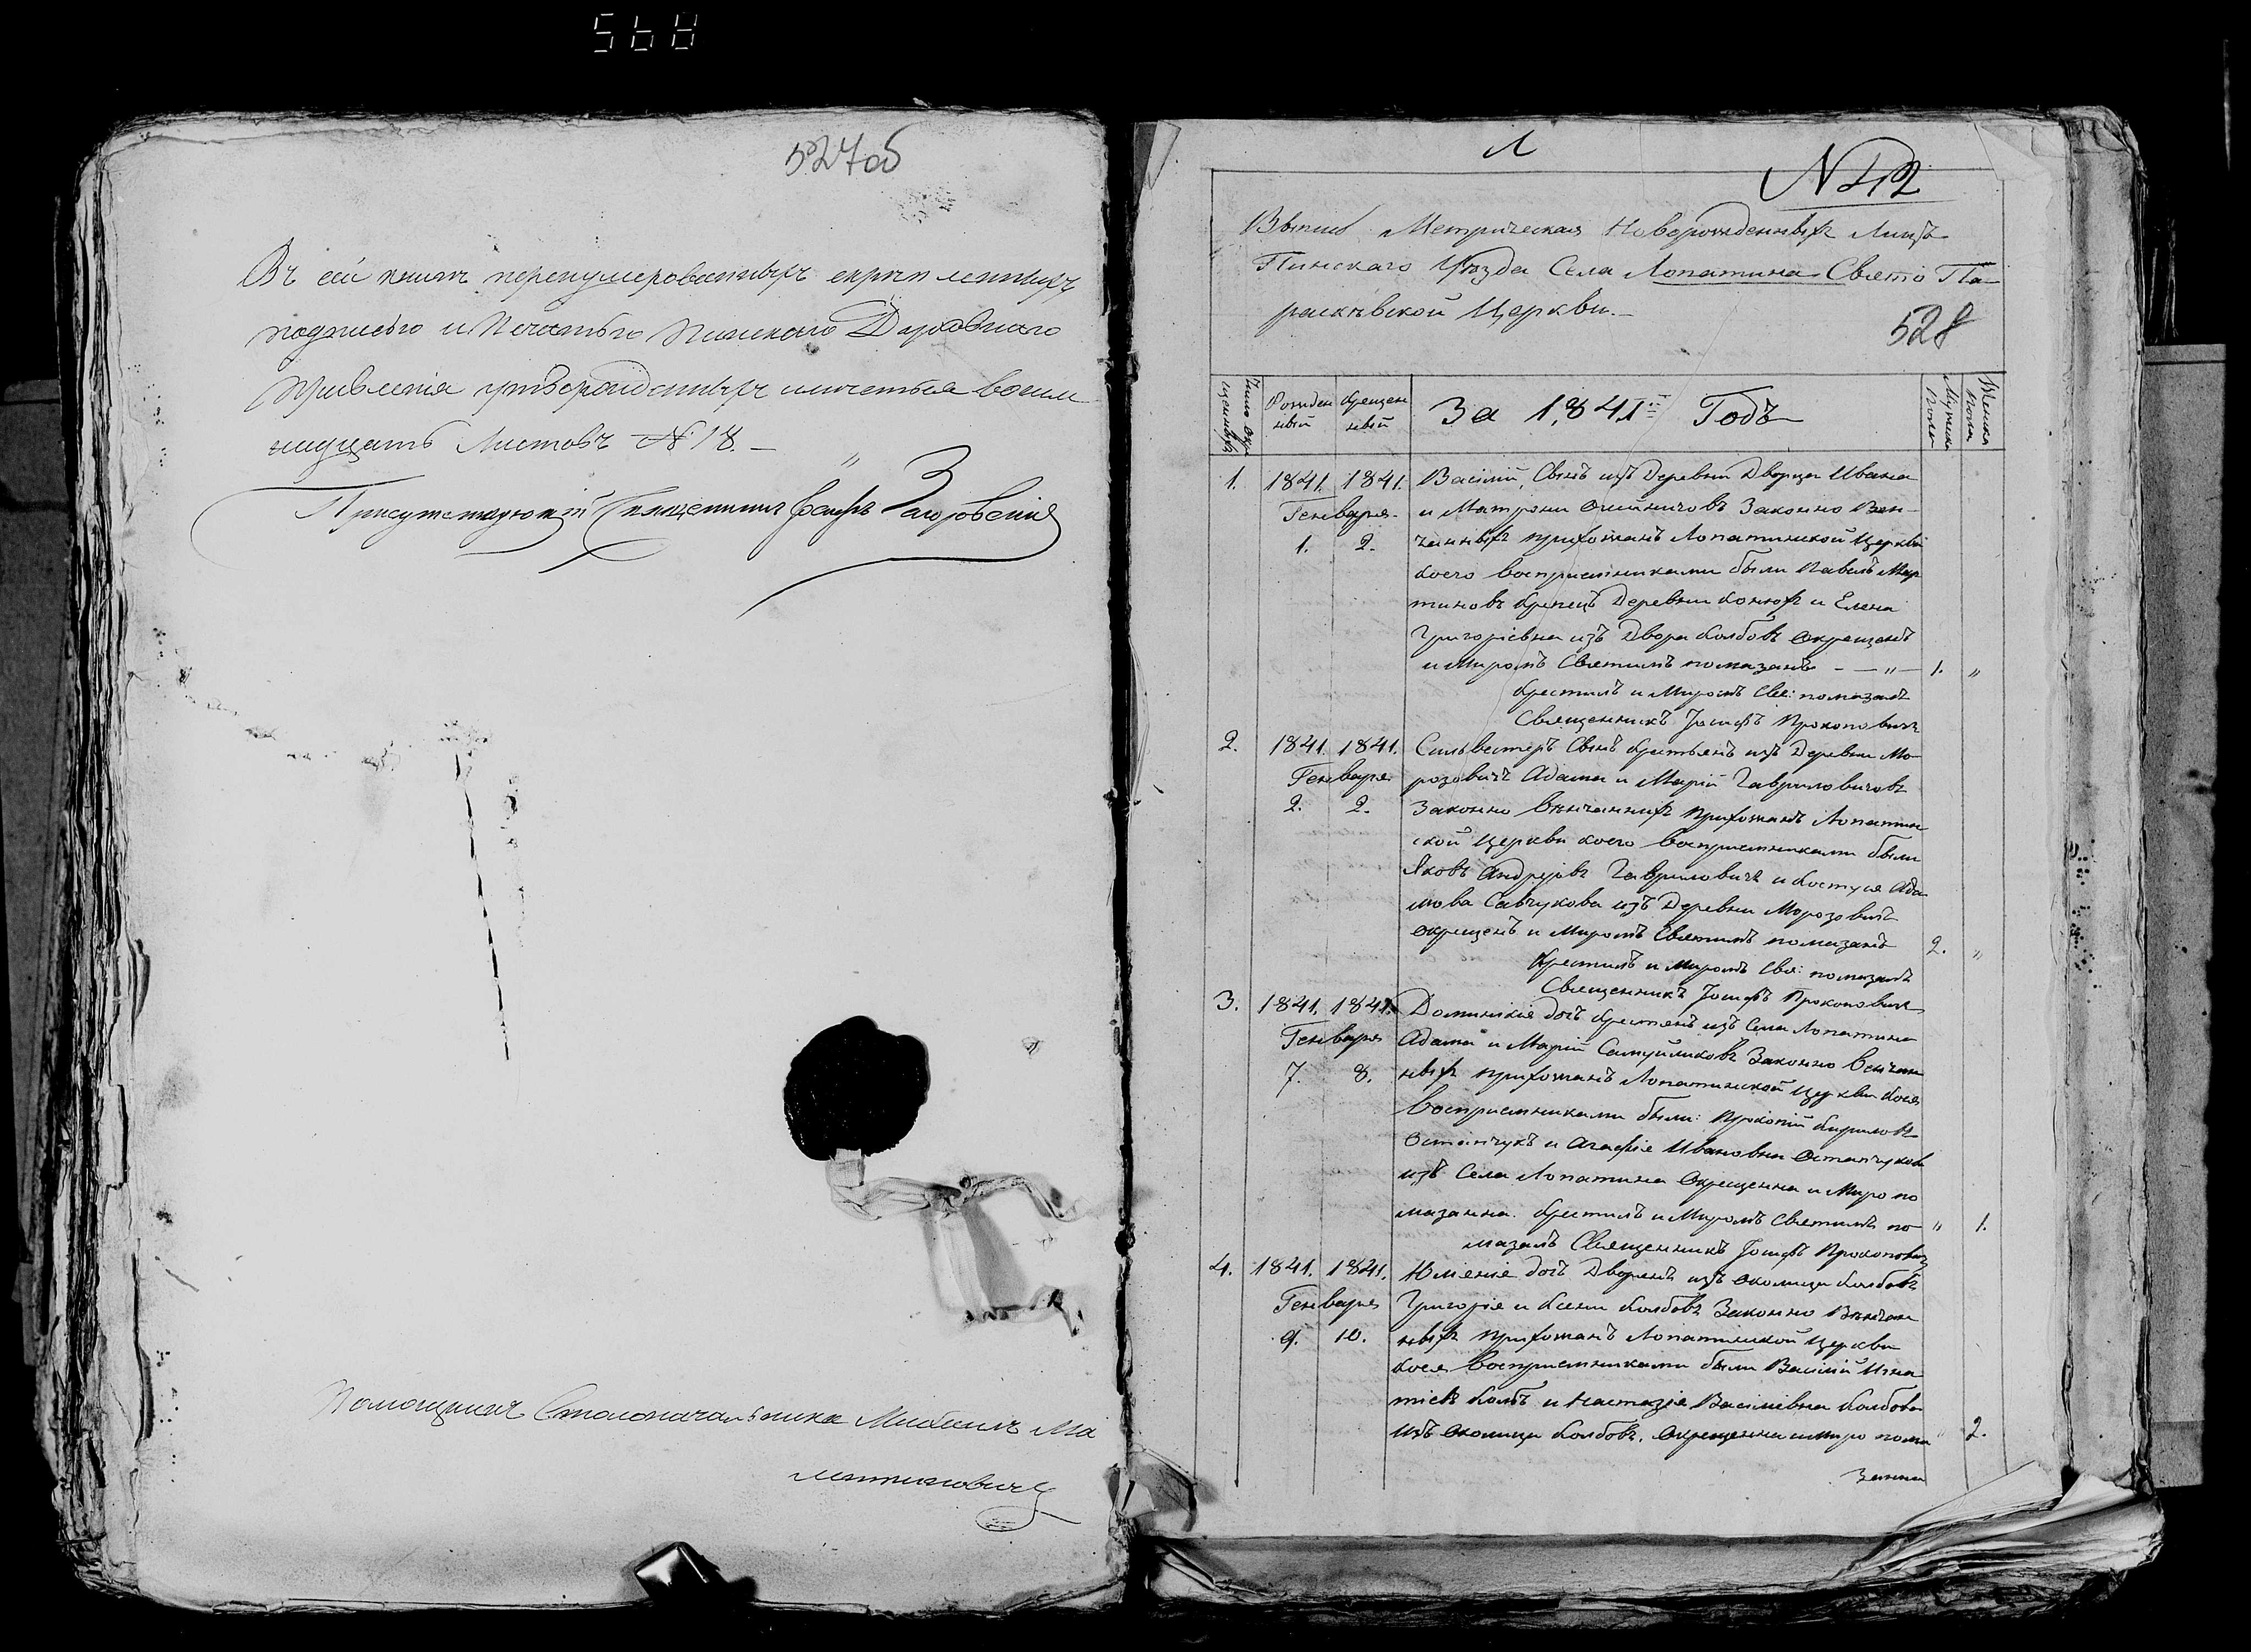 568
527об
Въ сей книги перенумерованныхъ скрепленныхъ
подписью и Печатью Пинскаго Духовнаго
Правленія утвержденныхъ имѣется восем
надцать Листовъ № 18.
Присутствующій Священникъ Загоровскій
Помощникъ Столоначальника Михаилъ Ма
1
N 12
Выпись Метрическая Новорожденныхъ Лицъ
Пинскаго Уѣзда Села Лопатина Свято Па-
раскѣвской Церкви.-
528
Число окре
щенныхъ
Рожден
ный
Крещен
ный
За 1841й Годъ
Мужска
Пола
Женска
Пола
1. 1841. 1841. Васілій, Сынъ изъ Деревни Дворца Ивана
Генваря и Матроны Законно Вен-
1. 2. чанныхъ прихожанъ Лопатинской Церкви
коего воспріемниками были Павелъ Мар
тиновъ Деревни Конюхъ и Елена
Григоріевна изъ Двора Колбовъ окрещенъ
и Миромъ Святимъ помазанъ - — „ — 1. „
Крестилъ и Миромъ Свя: помазалъ
Священникъ Іосифъ Прокоповичъ
2. 1841. 1841. Сильвестеръ Сынъ Крестьянъ изъ Деревни Мо-
Генваря розовичъ Адама и Маріи Гавриловичовъ
2. 2. Законно Вѣнчанныхъ прихожанъ Лопатин
ской Церкви коего воспріемниками были
Яковъ Андреювъ Гавриловичъ и Костуся Ада
мова Савчукова изъ Деревни Морозовичъ
окрещенъ и Миромъ Святимъ помазанъ 2. „
Крестилъ и Миромъ Свя: помазалъ
Священникъ Іосифъ Прокоповичъ
3. 1841. 1841. Доминикія дочь Крестянъ изъ Села Лопатина
Генваря Адама и Маріи Самуйликовъ Законно Венчан
7. 8. ныхъ прихожанъ Лопатинской Церкви коея
воспріемниками были: Прокопій Кириловъ
Остапчукъ и Агафія Ивановна Остапчукова
изъ Села Лопатина Окрещенна и Миро по
мазанна. Крестилъ и Миромъ Святимъ по „ 1.
мазалъ Священникъ Іосифъ Прокоповичъ
4. 1841. 1841. Юліянія дочь Дворянъ изъ околицы Колбовъ
Генваря Григорія и Ксени Колбовъ Законно Вѣнчан
9. 10. ныхъ прихожанъ Лопатинской Церкви
коея воспріемниками были Васілій Игна
тіевъ Колбъ и Настазія Васіліевна Колбова
изъ околицы Колбовъ. окрещенна и миро пома „ 2.
занна